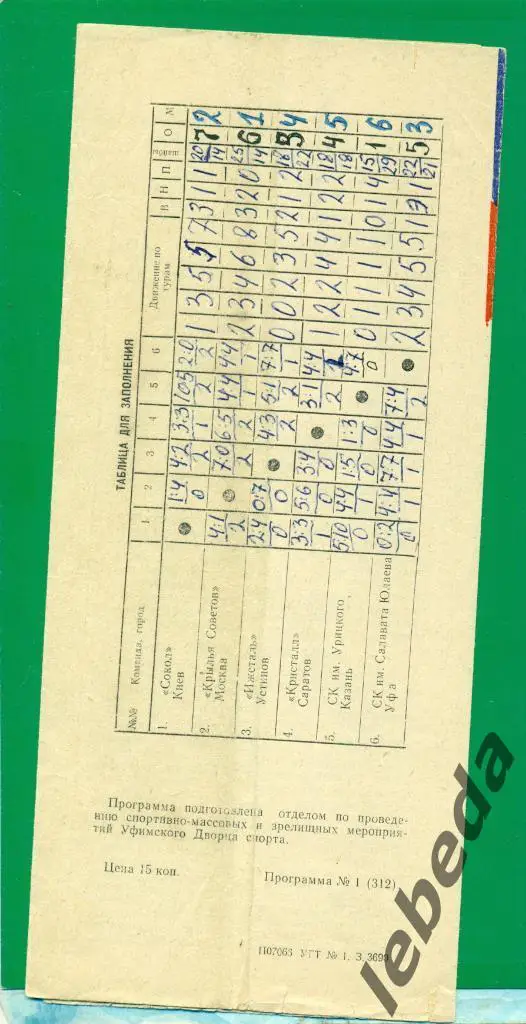 ТАБЛИЦА ДЛЯ ЗАПОЛНЕНИЯ
№№ Команда, город 1 2 3 4 5 6 Движение по турам В Н П шайбы О М
1. «Сокол» 1:4 4:2 3:3 10:5 2:0 1 3 5 5 7 3 1 1 20 7 2
Киев 0 2 1 2 2 14
2. «Крылья Советов» 4:1 7:0 6:5 4:4 4:4 2 3 4 6 8 3 2 0 25 6 1
Москва 2 2 2 1 1 14
3. «Ижсталь» 2:4 0:7 4:3 5:1 7:7 0 0 2 3 5 2 1 2 18 3 4
Устинов 0 0 2 2 1 22
4. «Кристалл» 3:3 5:6 3:4 3:1 4:4 1 2 2 4 4 1 2 2 18 4 5
Саратов 1 0 0 2 1 18
5. СК им. Урицкого, 5:10 4:4 1:5 1:3 4:7 0 1 1 1 1 0 1 4 15 1 6
Казань 0 1 0 0 0 29
6. СК им. Салавата Юлаева 0:2 4:4 7:7 4:4 7:4 2 3 4 5 5 1 3 1 22 5 3
Уфа 0 1 1 1 2 21
Программа подготовлена отделом по проведе-
нию спортивно-массовых и зрелищных мероприя-
тий Уфимского Дворца спорта.
Цена 15 коп. Программа № 1 (312)
П07066 УГТ № 1. З. 3699
lebeda